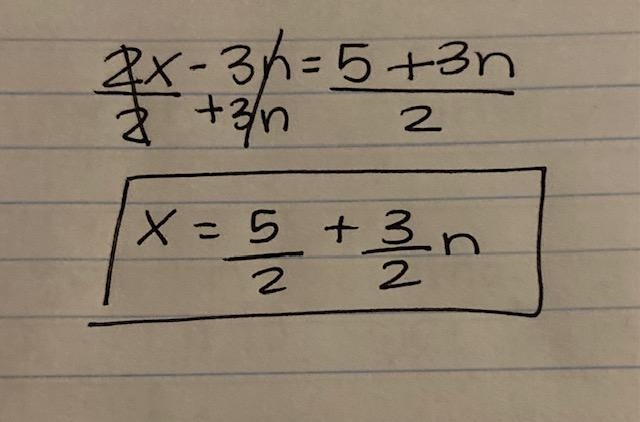 2x - 3n = 5 + 3n
2 + 3n 2
x = 5/2 + 3/2 n